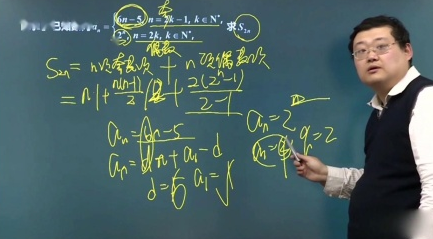 已知数列 aₙ = { 6n-5, n=2k-1, k∈N*, 奇
2ⁿ, n=2k, k∈N*, 求 S₂ₙ
偶数
S₂ₙ = n项奇数项 + n项偶数项
= n·1 + n(n-1)/2 + 2(2ⁿ-1)/2-1
aₙ = 6n-5
aₙ = dn + a₁ - d
d = 6 a₁ = 1
aₙ = 2ⁿ
q = 2